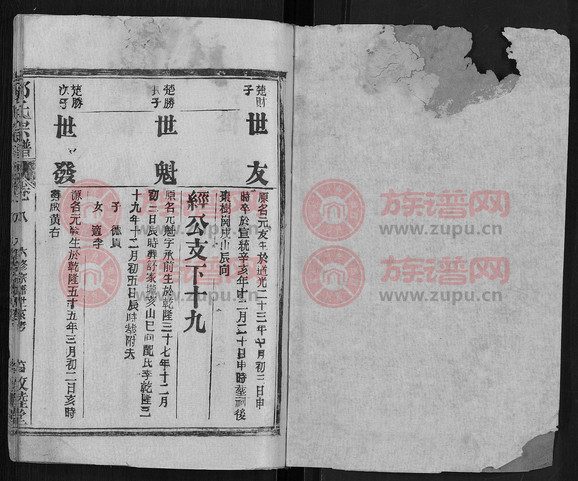 楚財
子
世友
原名元友生於道光二十三年七月初三日申
時卒於宣統辛亥年十二月二十日申時葬
棗樹園戌山辰向
經公支下十九
楚勝
子
世魁
原名元魁字承前生於乾隆三十七年十二月
初三日辰時葬
亥山巳向配氏李乾隆三
十九年十二月初五日辰時葬附夫
子 德貴
女 適李
楚勝
次子
世發
原名元發生於乾隆五十五年三月初二日亥時
葬
黃右
氏宗譜
敦睦堂
族譜网
www.zupu.cn
族譜网
www.zupu.cn
族譜网
www.zupu.cn
族譜网
www.zupu.cn